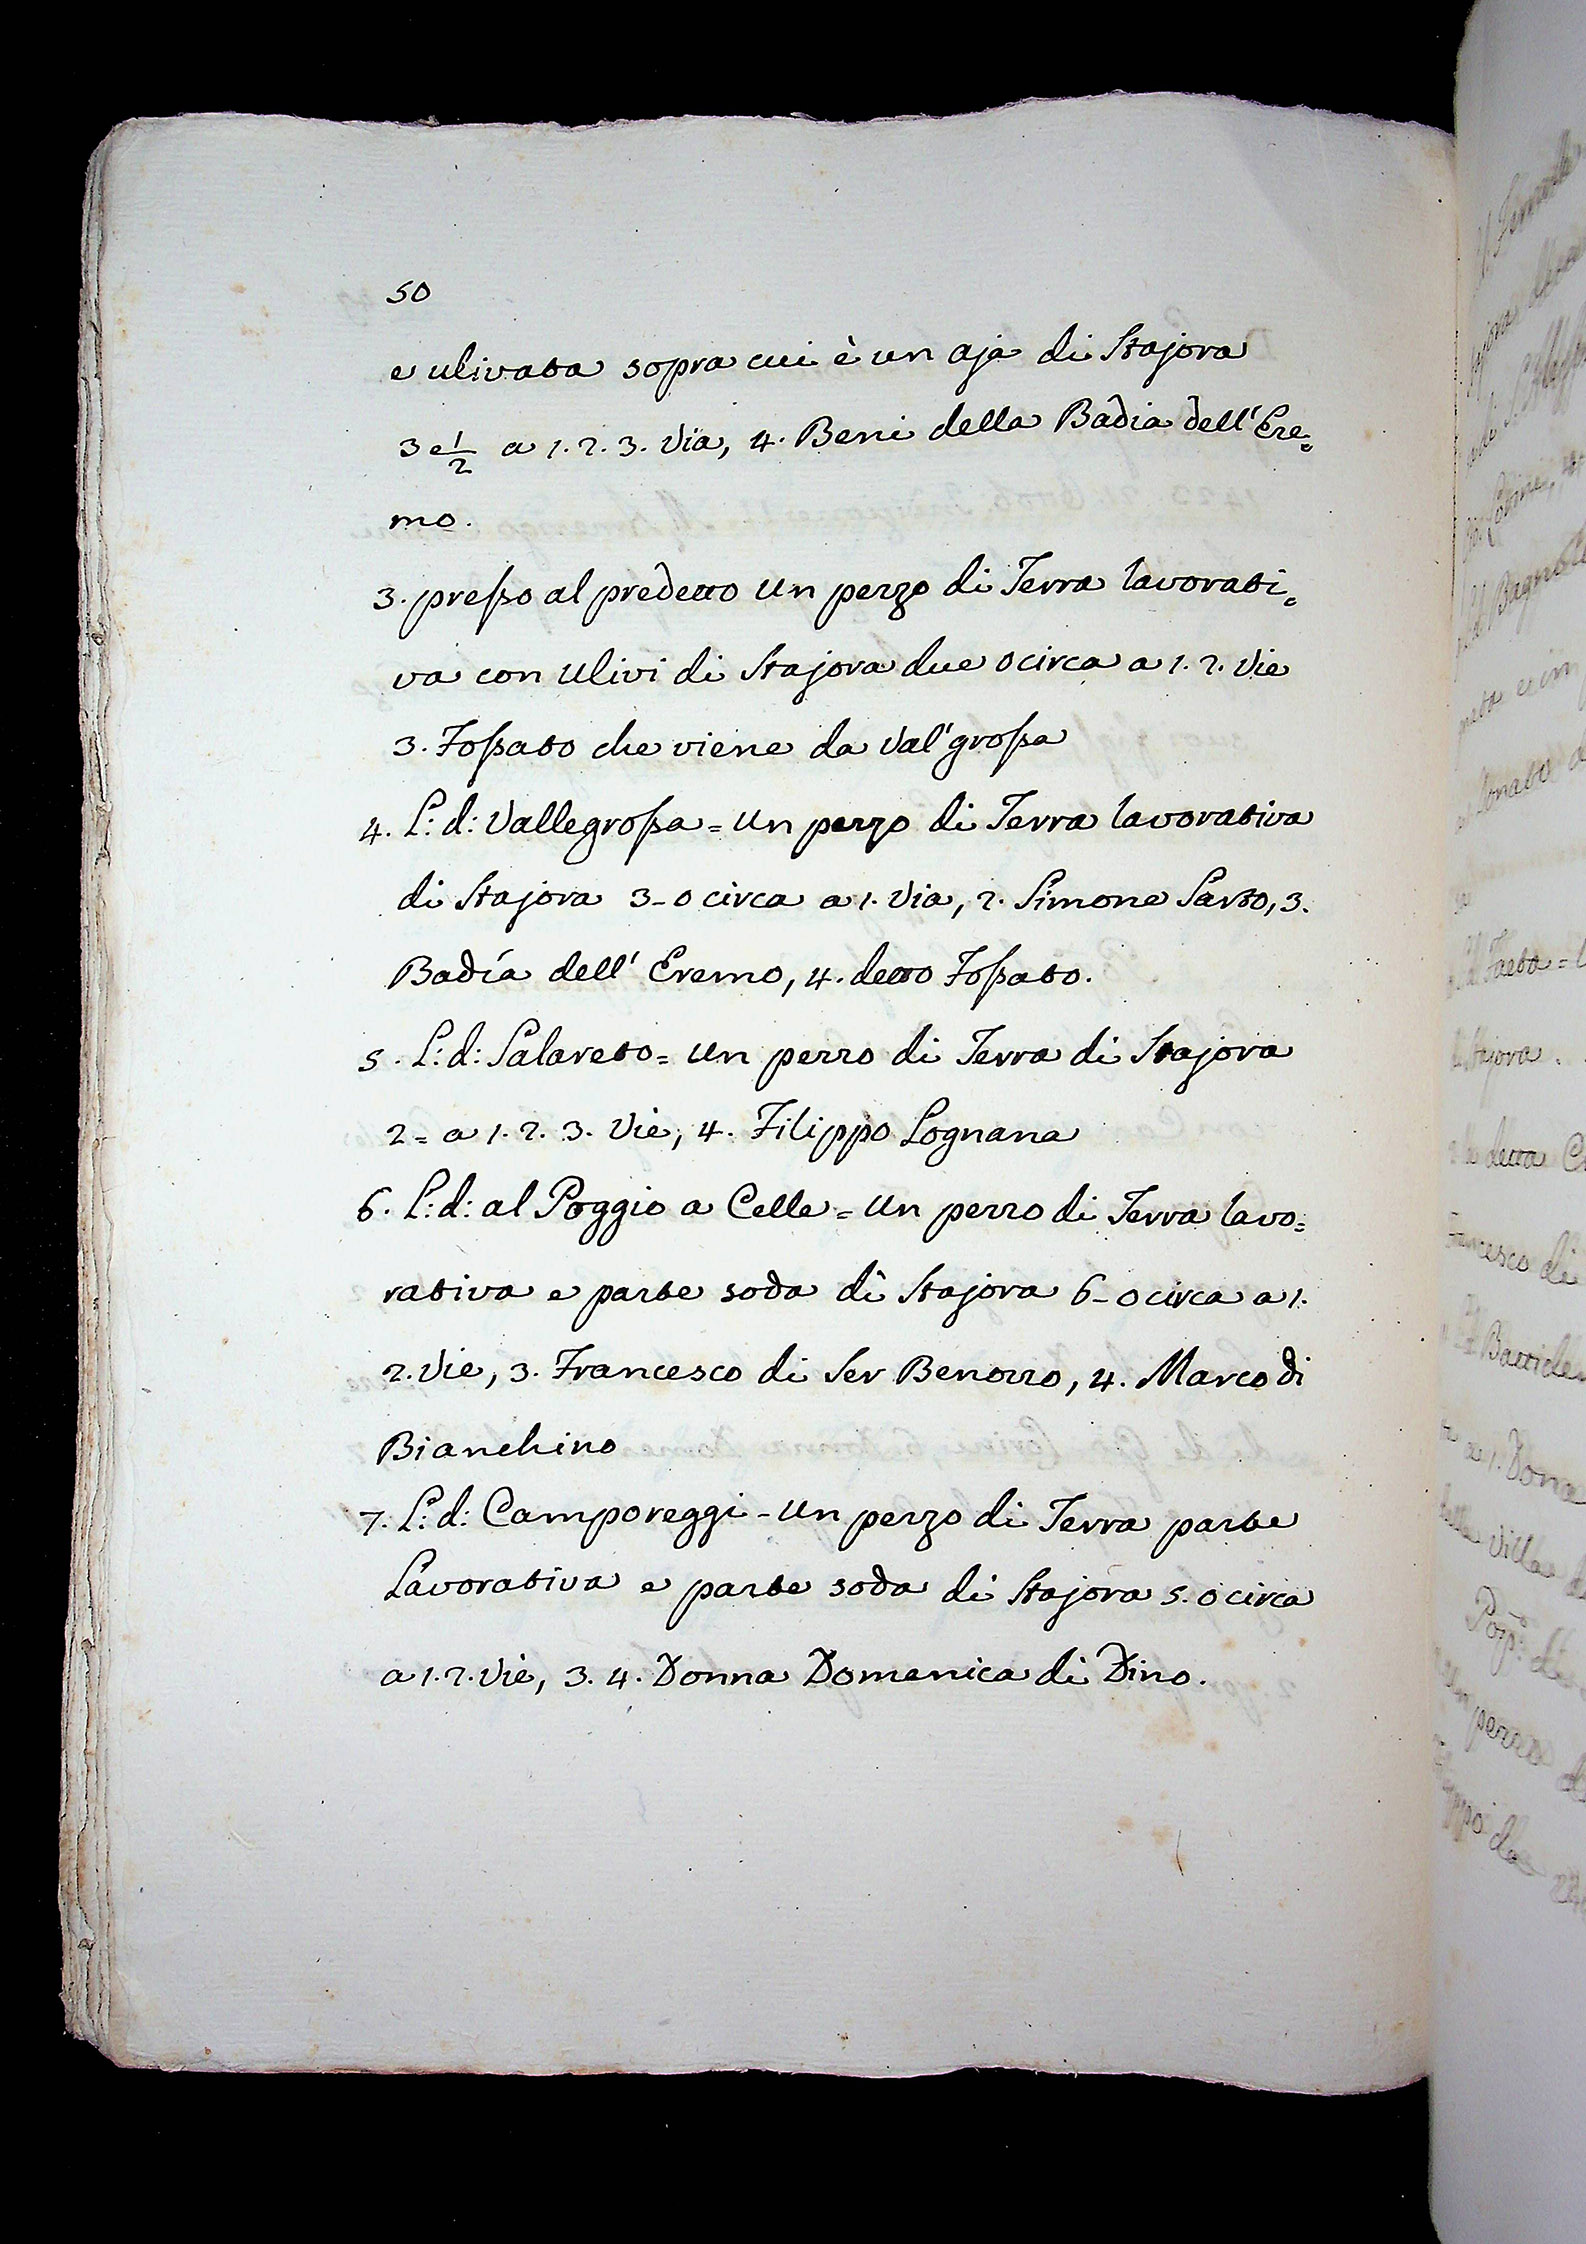 50
e ulivata sopra cui è un aja di Stajora
3 e 1/2 a 1. 2. 3. Via, 4. Beni della Badia dell' Ere=
mo.
3. presso al predetto un pezzo di Terra lavorati=
va con ulivi di Stajora due o circa a 1. 2. Vie
3. Fossato che viene da Val'grossa
4. L: d: Vallegrossa = un pezzo di Terra lavorativa
di Stajora 3 - o circa a 1. Via, 2. Simone Sarto, 3.
Badía dell' Eremo, 4. detto Fossato.
5. L: d: Salareto = un pezzo di Terra di Stajora
2 = a 1. 2. 3. Vie, 4. Filippo Lognana
6. L: d: al Poggio a Celle = un pezzo di Terra lavo=
rativa e parte soda di Stajora 6 - o circa a 1.
2. Vie, 3. Francesco di Ser Benozzo, 4. Marco di
Bianchino
7. L: d: Camporeggi - un pezzo di Terra parte
Lavorativa e parte soda di Stajora 5. o circa
a 1. 2. Vie, 3. 4. Donna Domenica di Dino.